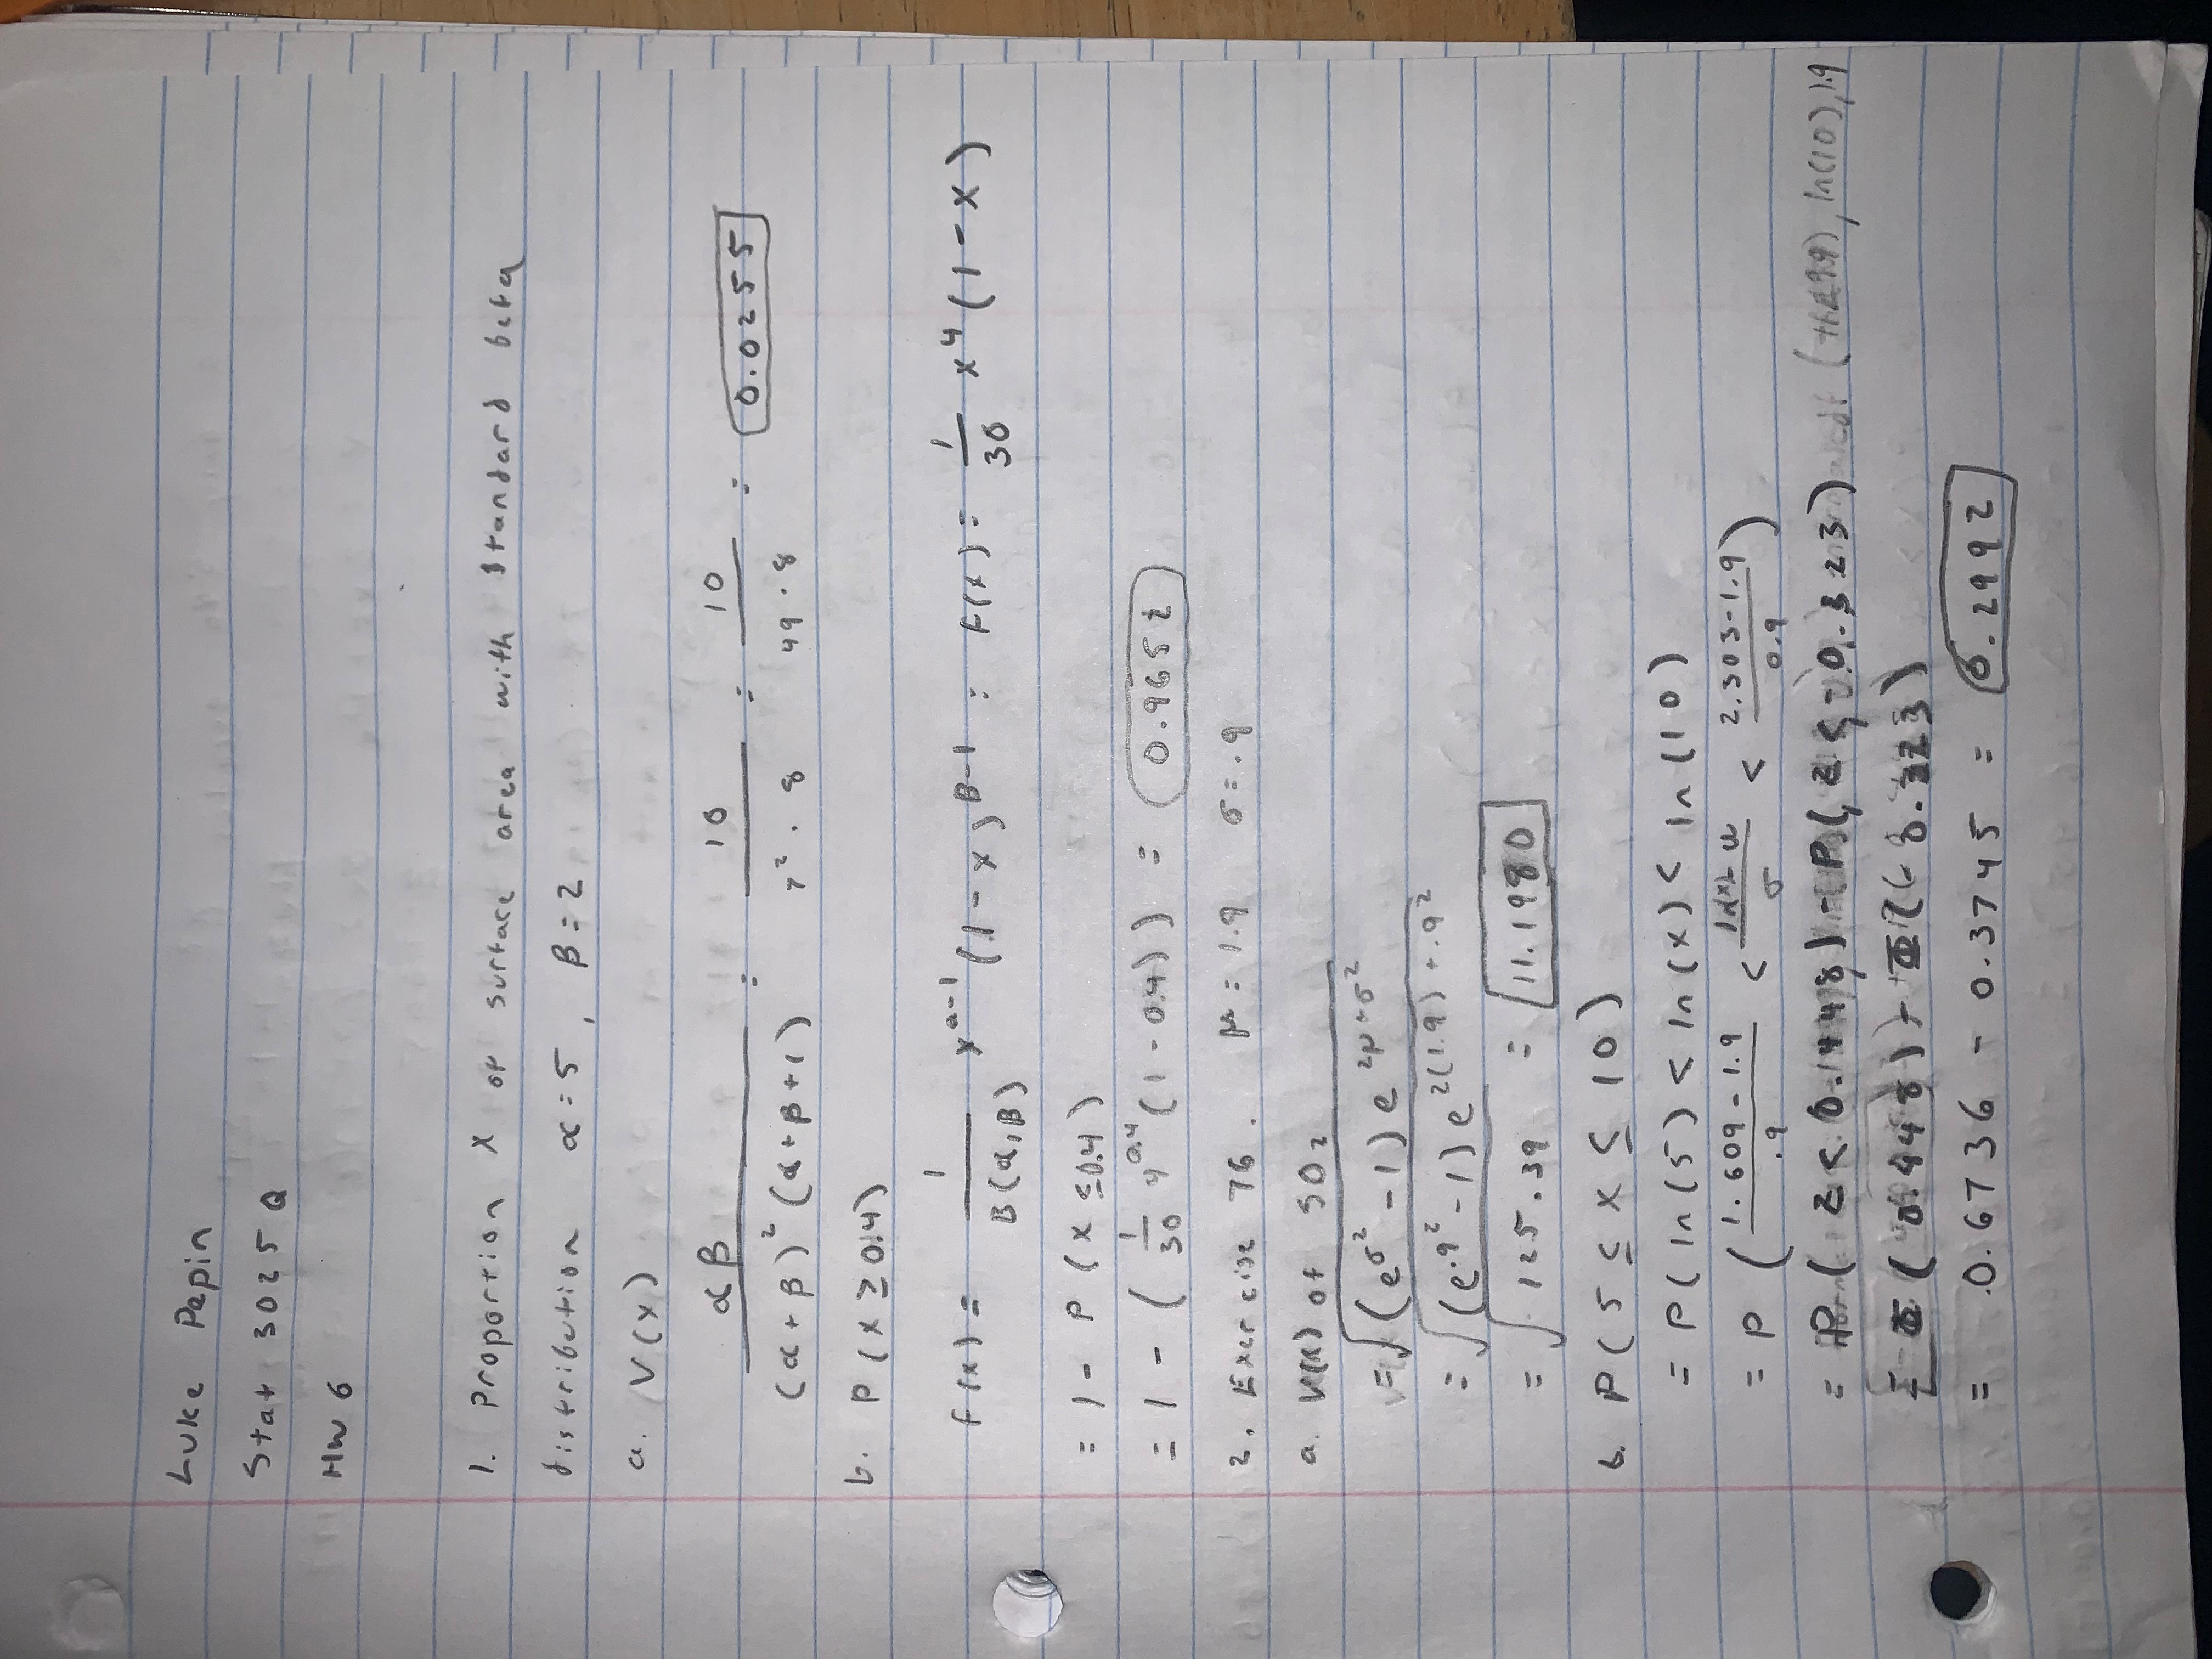 Luke Pepin
Stat 3025Q
HW 6
1. Proportion X of surface area with standard beta
distribution α = 5, β = 2
a. V(x)
αβ / (α+β)² (α+β+1) = 10 / 7² · 8 = 10 / 49 · 8 = 0.0255
b. P(x ≥ 0.4)
F(x) = 1 / B(α,β) x^α-1 (1-x)^β-1 = F(x) = 1/30 x⁴ (1-x)
= 1 - P(x ≤ 0.4)
= 1 - (1/30 4^0.4 (1-0.4)) = 0.9652
2. Exercise 76. μ = 1.9 σ = .9
a. V(x) of SO₂
= √((e^σ² - 1) e^2μ+σ²)
= √((e^.9² - 1) e^2(1.9)+.9²)
= √125.39 = 11.1980
b. P(5 ≤ x ≤ 10)
= P(ln(5) < ln(x) < ln(10)
= P(1.609-1.9 / .9 < ln(x)-μ / σ < 2.303-1.9 / 0.9)
= P(z < 0.448) - P(z < -0.323) cdf ln(10), 1.9
= Φ(0.448) - Φ(-0.323)
= 0.6736 - 0.3745 = 0.2992